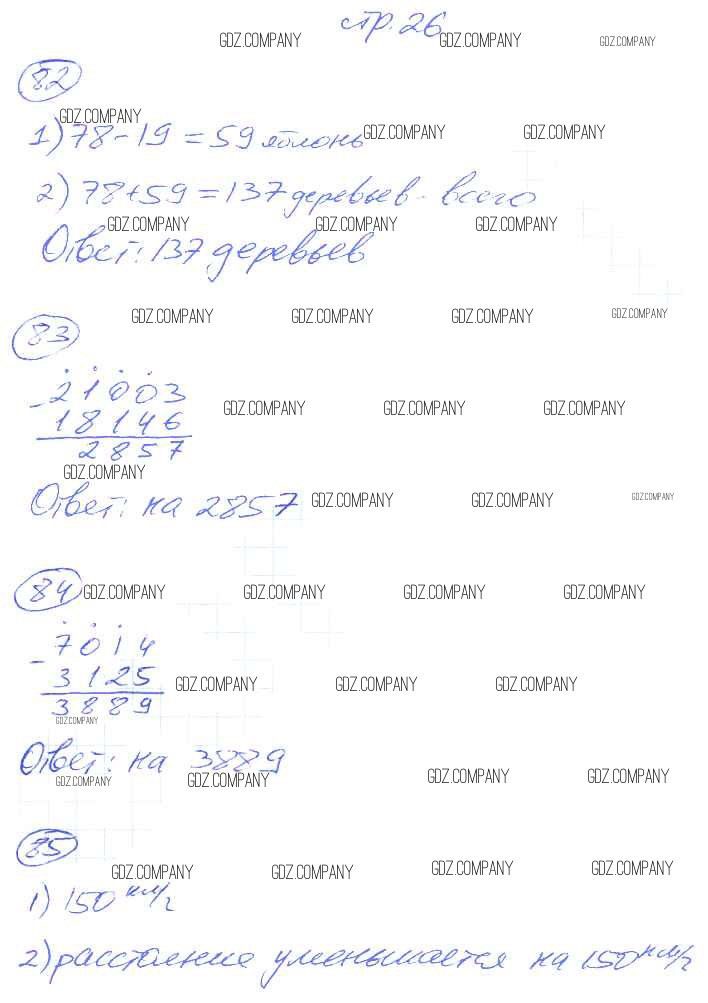 стр. 26
GDZ.COMPANY GDZ.COMPANY GDZ.COMPANY
82
GDZ.COMPANY
1) 78 - 19 = 59 яблонь
GDZ.COMPANY GDZ.COMPANY
2) 78 + 59 = 137 деревьев - всего
GDZ.COMPANY GDZ.COMPANY GDZ.COMPANY
Ответ: 137 деревьев
GDZ.COMPANY GDZ.COMPANY GDZ.COMPANY GDZ.COMPANY
83
- 21003
GDZ.COMPANY GDZ.COMPANY GDZ.COMPANY
18146
2857
GDZ.COMPANY
Ответ: на 2857
GDZ.COMPANY GDZ.COMPANY GDZ.COMPANY
84
GDZ.COMPANY GDZ.COMPANY GDZ.COMPANY GDZ.COMPANY
- 7014
3125
GDZ.COMPANY GDZ.COMPANY GDZ.COMPANY
3889
GDZ.COMPANY
Ответ: на 3889
GDZ.COMPANY GDZ.COMPANY GDZ.COMPANY GDZ.COMPANY
85
GDZ.COMPANY GDZ.COMPANY GDZ.COMPANY GDZ.COMPANY
1) 150 км/ч
2) расстояние уменьшается на 150 км/ч